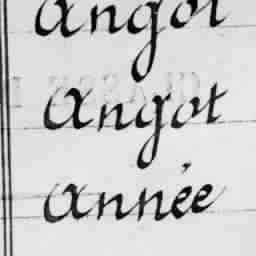 Angot
Angot
Année